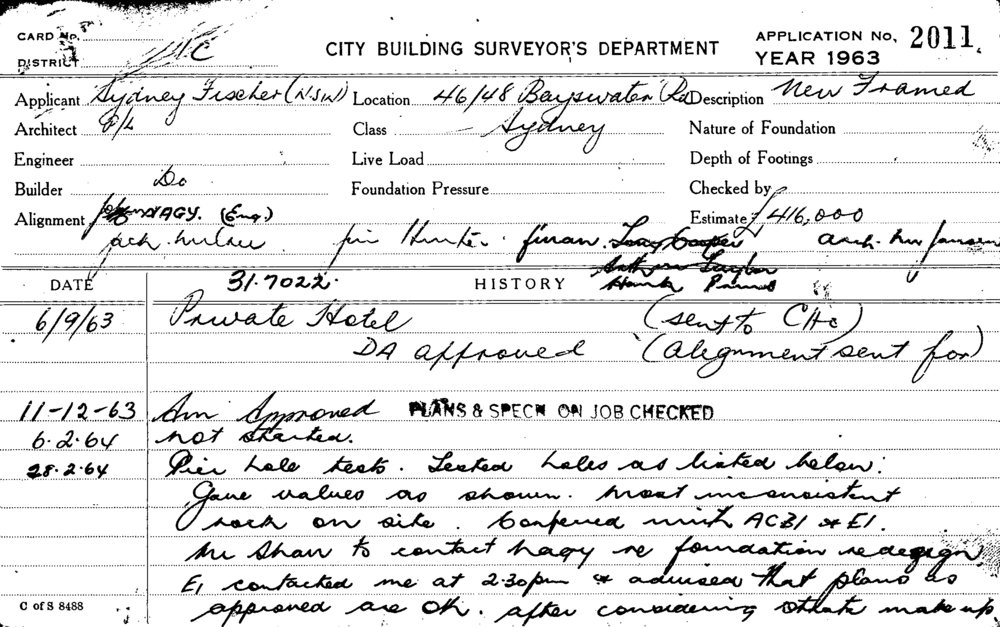 CARD No.
DISTRICT
CITY BUILDING SURVEYOR'S DEPARTMENT
APPLICATION No. 2011
YEAR 1963
Applicant Sydney Fischer (NSW) Location 46/48 Bayswater Rd Description New Framed
Architect P/L Class Sydney Nature of Foundation
Engineer Live Load Depth of Footings
Builder Do Foundation Pressure Checked by
Alignment NAGY. (Eng.) Estimate £416,000
Jim Hunter. finan. Tony Cooper arch. Mr Jansen
Hank
DATE 31.7022. HISTORY
6/9/63 Private Hotel (sent to CHC)
DA approved (alignment sent for)
11-12-63 Am Approved PLANS & SPECN ON JOB CHECKED
6.2.64 not started.
28.2.64 Pier hole tests. Tested holes as listed below:
Gave values as shown. Most inconsistent
rock on site. Conferred with ACBI & EI.
Mr Shaw to contact Nagy re foundation redesign.
EI contacted me at 2.30pm & advised that plans as
C of S 8488 approved are OK. after considering strata make up.